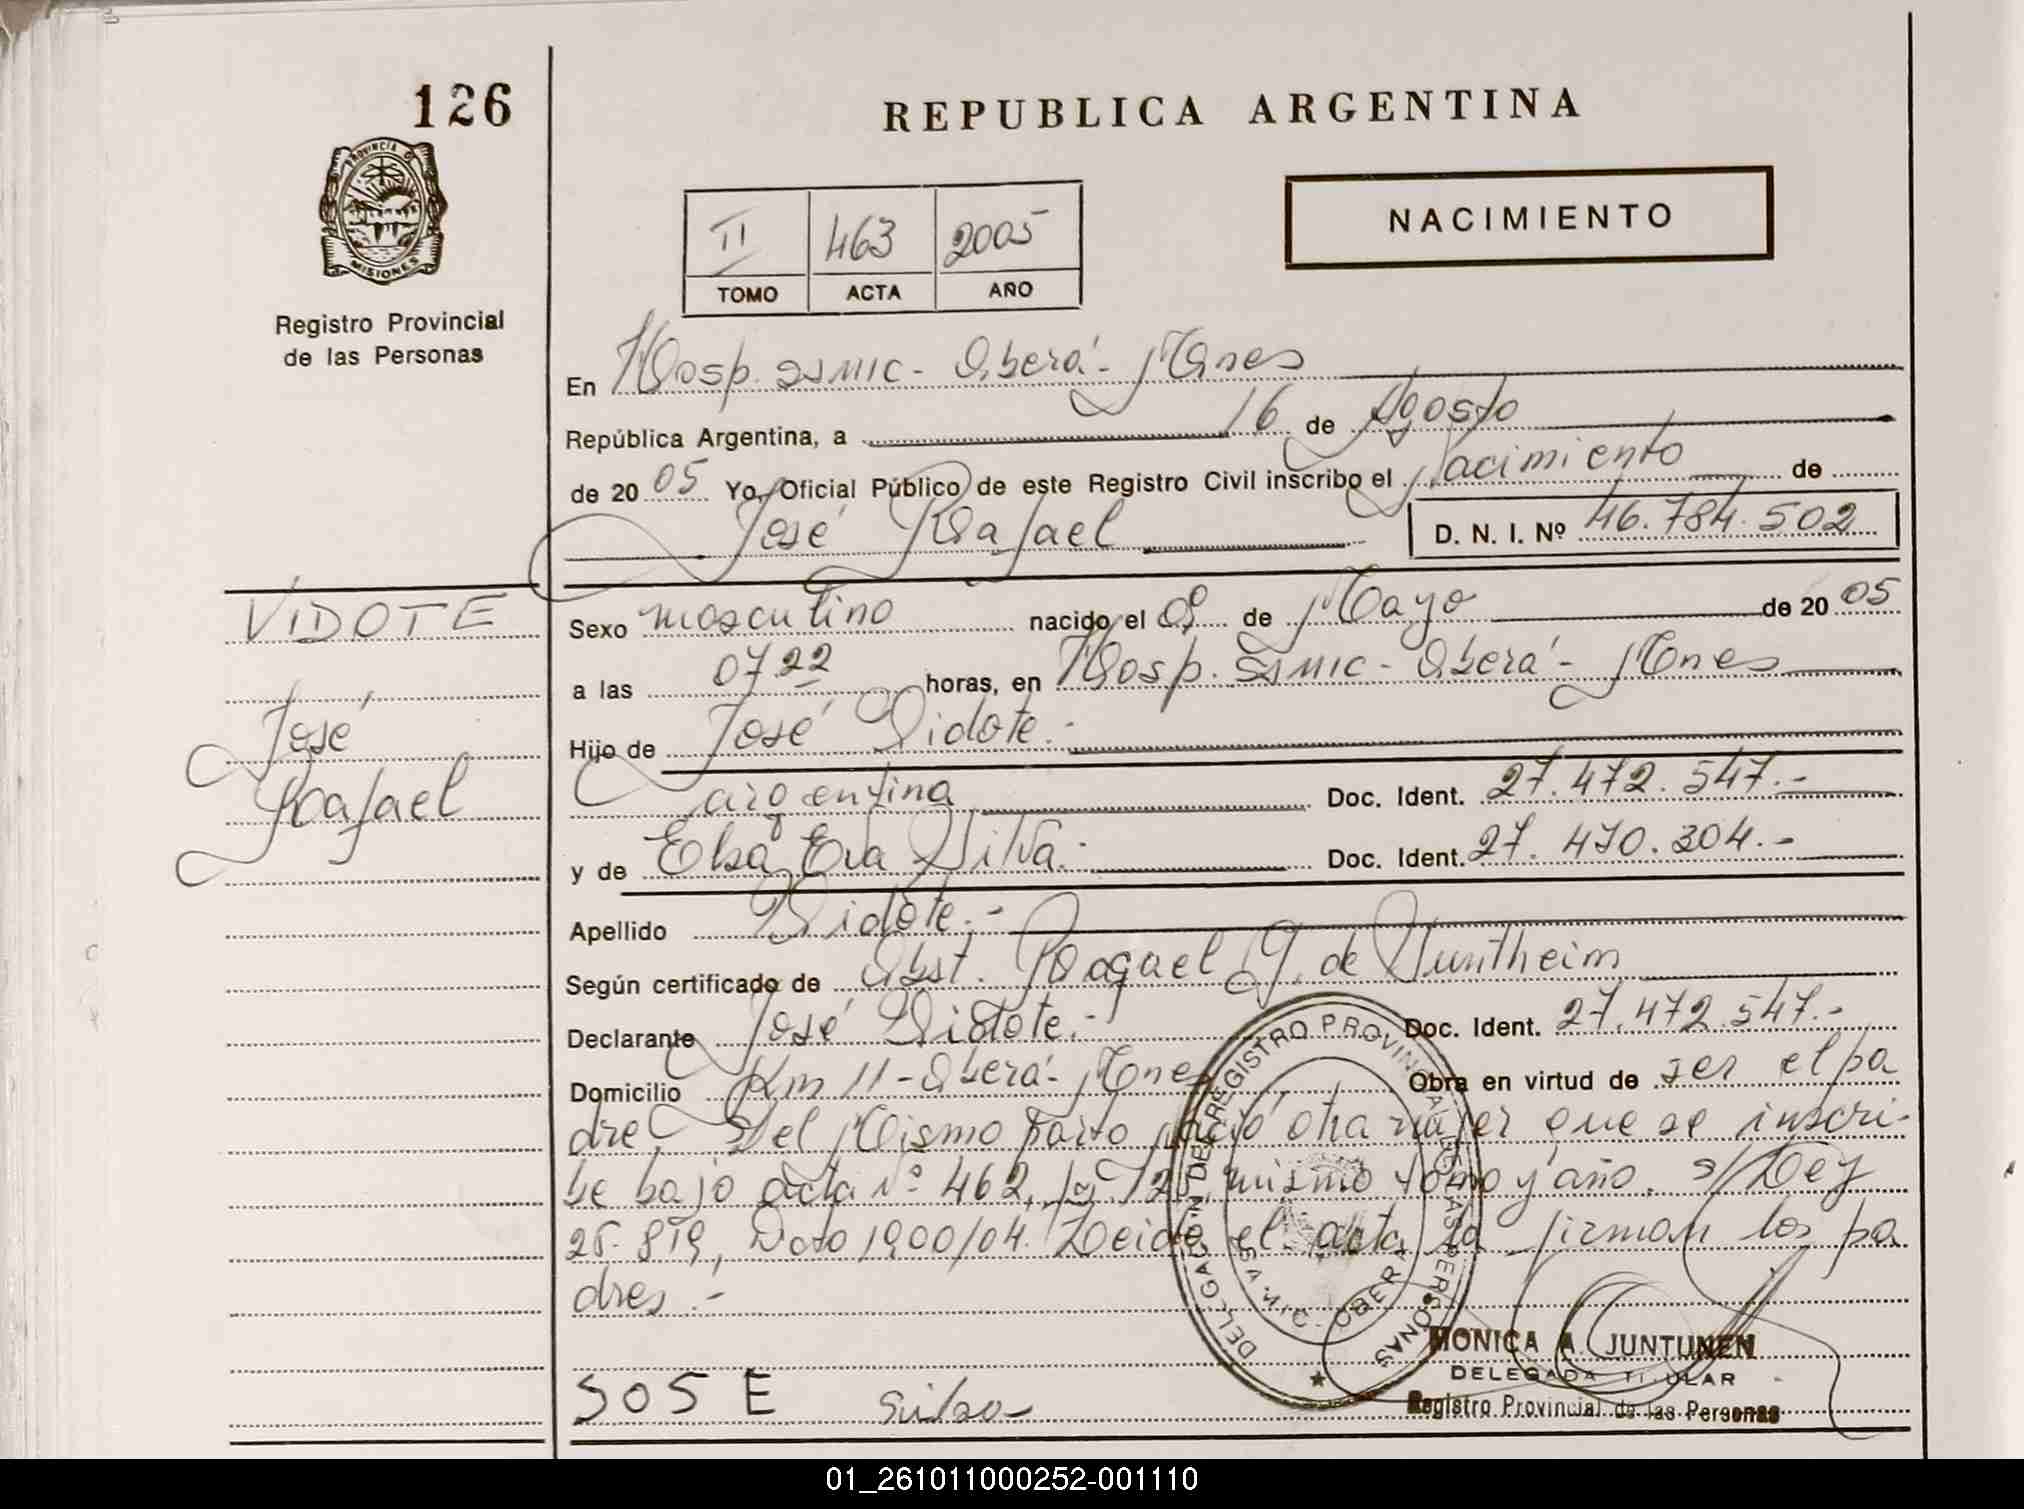 126
PROVINCIA D
MISIONES
Registro Provincial
de las Personas
REPUBLICA ARGENTINA
II 463 2005
TOMO ACTA AÑO
NACIMIENTO
En Hosp. SAMIC - Oberá - Mnes
República Argentina, a 16 de Agosto
de 20 05 Yo, Oficial Público de este Registro Civil inscribo el Nacimiento de
José Rafael D. N. I. Nº 46.784.502
VIDOTE
José
Rafael
Sexo masculino nacido el 09 de Mayo de 20 05
a las 0722 horas, en Hosp. SAMIC - Oberá - Mnes
Hijo de José Vidote.-
argentina Doc. Ident. 27.472.547.-
y de Elsa Eva Silva.- Doc. Ident. 27.470.304.-
Apellido Vidote.-
Según certificado de Obst. Raquel G. de Suntheim
Declarante José Vidote.- Doc. Ident. 27.472.547.-
Domicilio Km 11 - Oberá - Mnes Obra en virtud de ser el pa
dre. Del Mismo parto nació otra mujer que se inscri-
be bajo acta Nº 462, fº 125, mismo tomo y año. s/Ley
25.819, Dcto 1900/04. Leida el acta, la firman los pa
dres.-
DELEGACION DEL REGISTRO PROVINCIAL DE LAS PERSONAS
OBERA
JOSE Silva
MONICA A. JUNTUNEN
DELEGADA TITULAR
Registro Provincial de las Personas
01_261011000252-001110